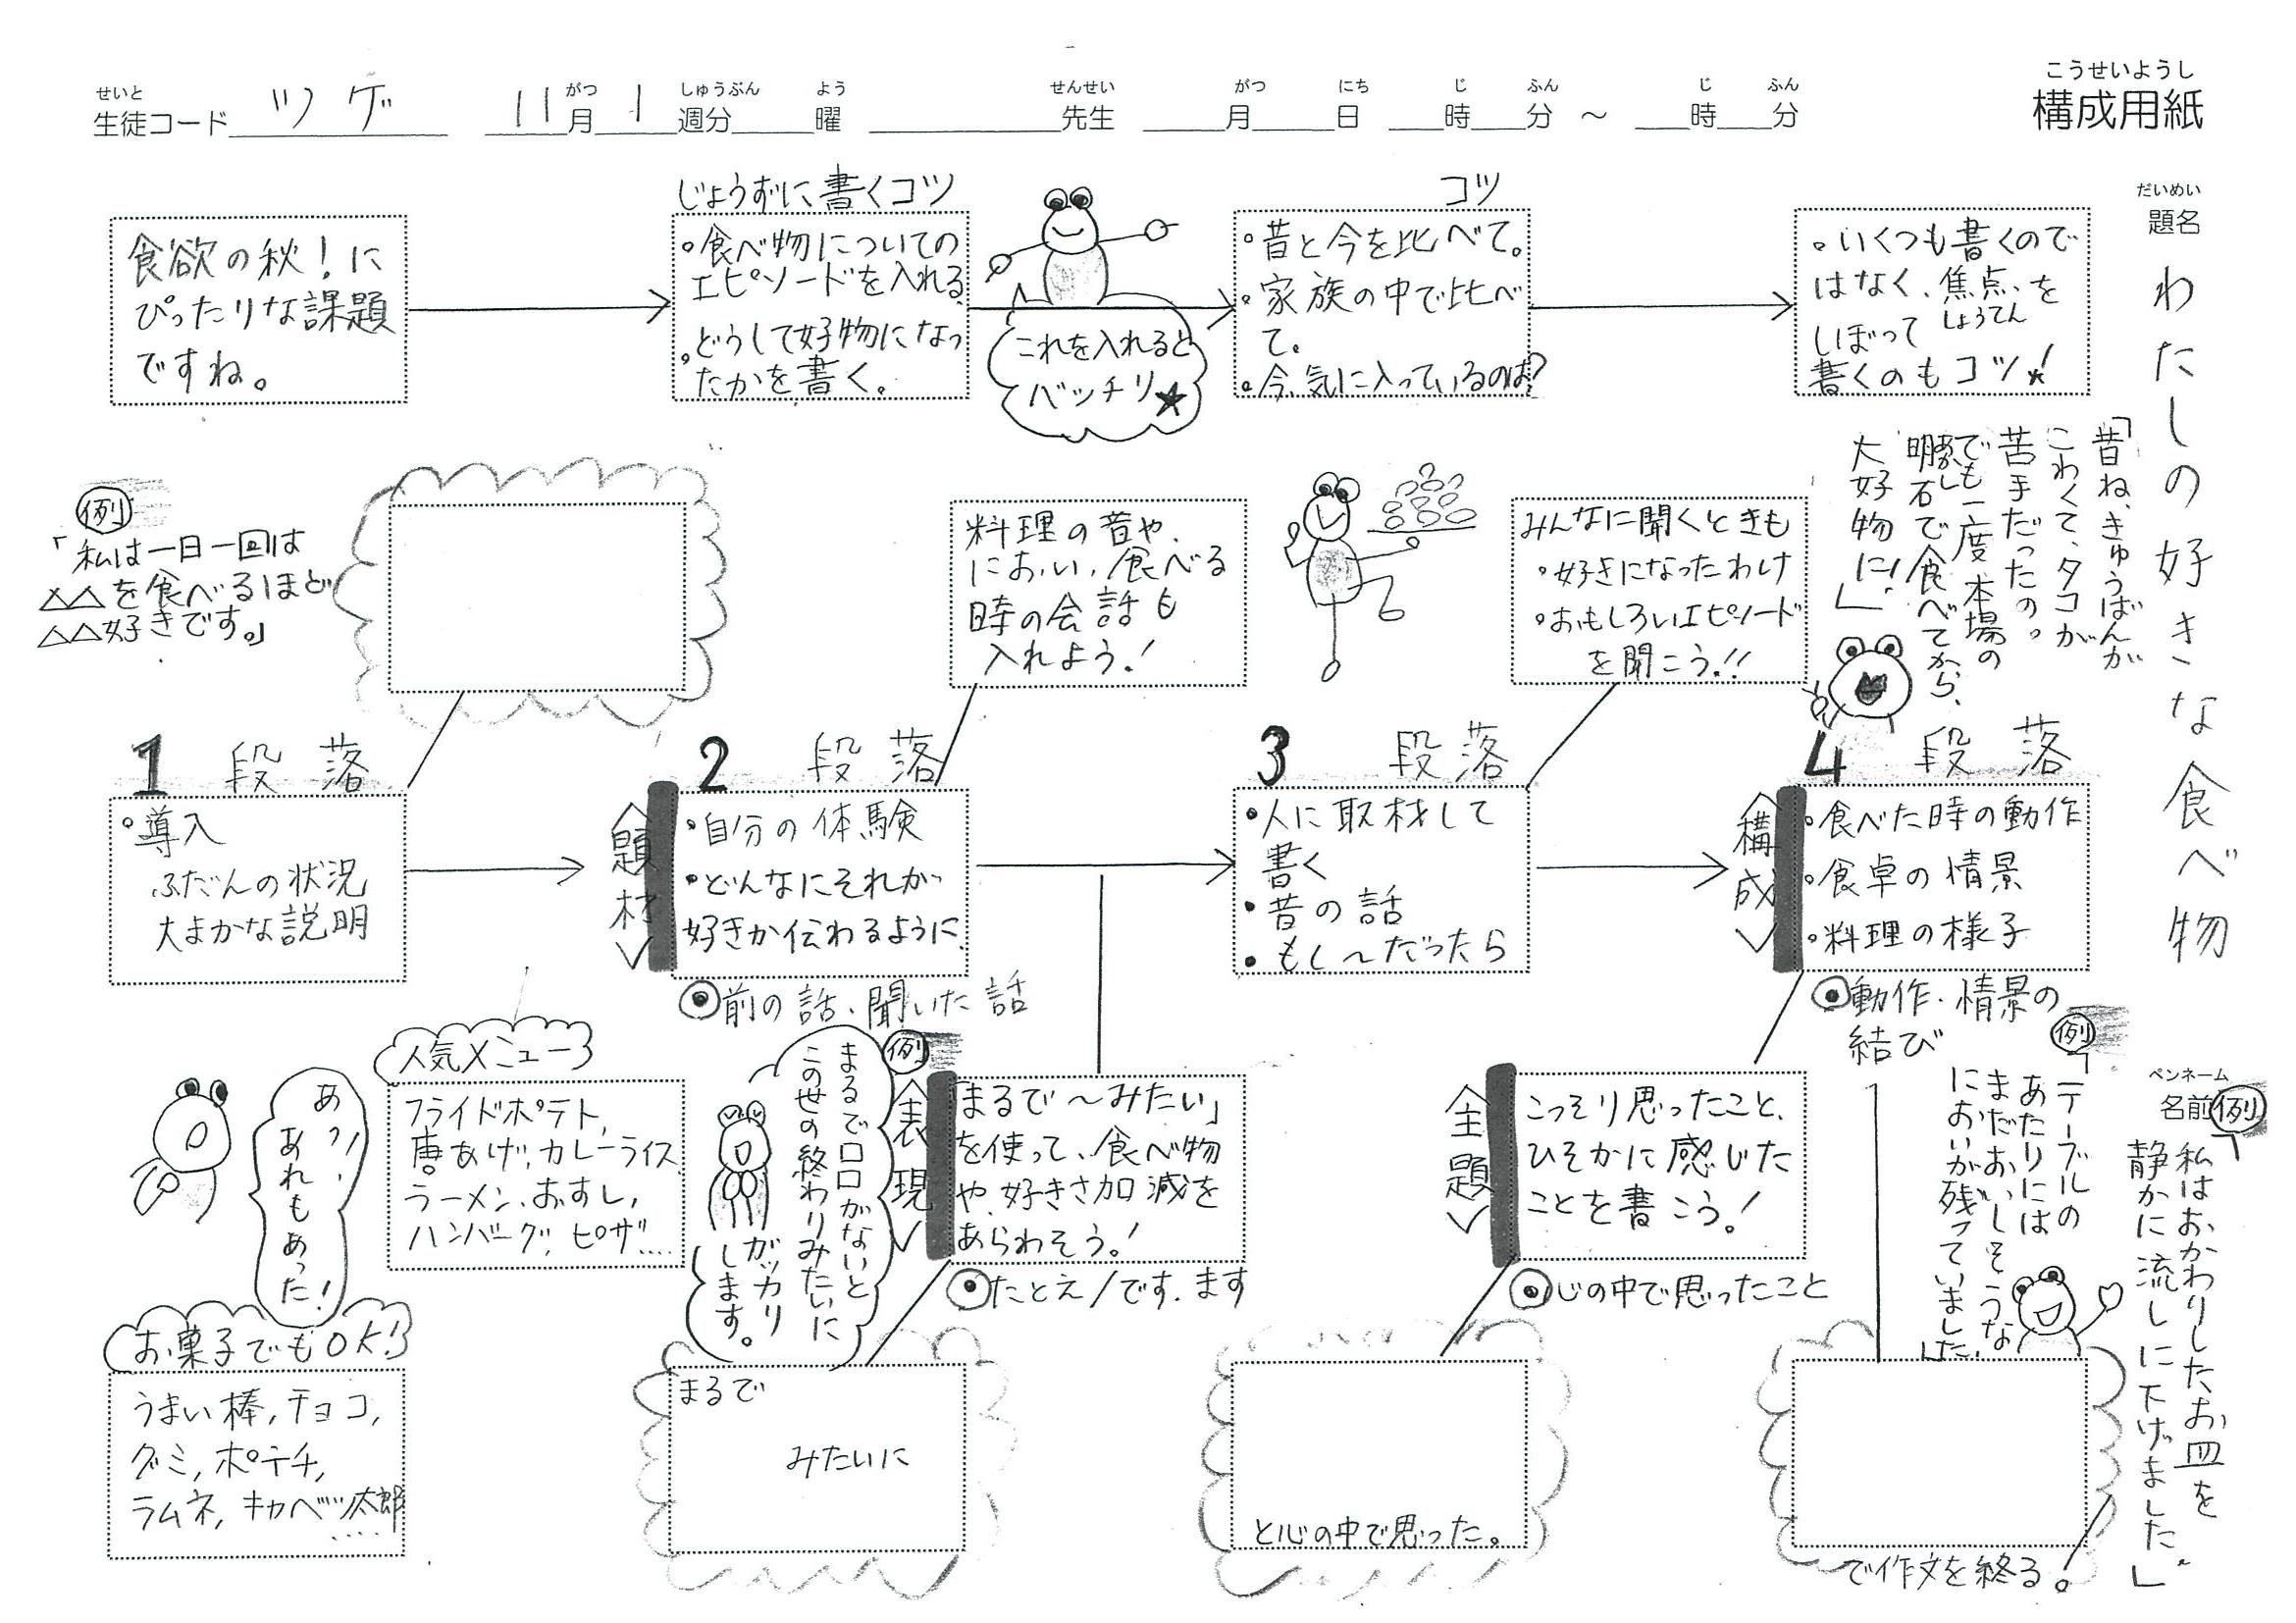 せいと
生徒コード ツゲ
がつ しゅうぶん よう せんせい がつ にち じ ふん じ ふん
11月 1週分 曜 先生 月 日 時 分 ～ 時 分
こうせいようし
構成用紙
だいめい
題名
わたしの好きな食べ物
食欲の秋！に
ぴったりな課題
ですね。
じょうずに書くコツ
・食べ物についての
エピソードを入れる
・どうして好物になっ
たかを書く。
これを入れると
バッチリ★
コツ
・昔と今を比べて。
・家族の中で比べ
て。
・今、気に入っているのは？
・いくつも書くので
はなく、焦点を
しょうてん
しぼって
書くのもコツ★！
「昔ね、きゅうばんが
こわくて、タコが
苦手だったの。
でも一度本場の
明石で食べてから、
大好物に！」
例
「私は一日一回は
△△を食べるほど
△△好きです。」
料理の音や、
におい、食べる
時の会話も
入れよう！
みんなに聞くときも
・好きになったわけ
・おもしろいエピソード
を聞こう！！
1 段落
・導入
ふだんの状況
大まかな説明
2 段落
＜題材＞
・自分の体験
・どんなにそれが
好きか伝わるように
◎前の話、聞いた話
3 段落
・人に取材して
書く
・昔の話
・もし～だったら
4 段落
＜構成＞
・食べた時の動作
・食卓の情景
・料理の様子
◎動作・情景の
結び
人気メニュー
フライドポテト,
唐あげ, カレーライス
ラーメン、おすし,
ハンバーグ, ピザ....
あっ！
あれもあった！
お菓子でもOK！
うまい棒, チョコ,
グミ, ポテチ,
ラムネ, キャベツ太郎
....
例
まるで口口がないと
この世の終わりみたいに
ガッカリ
します。
＜表現＞
「まるで～みたい」
を使って、食べ物
や、好きさ加減を
あらわそう！
◎たとえ/です、ます
まるで
みたいに
＜主題＞
こっそり思ったこと、
ひそかに感じた
ことを書こう！
◎心の中で思ったこと
と心の中で思った。
例
「テーブルの
あたりには
まだおいしそうな
においが残っていました」
で作文を終る。
ペンネーム
名前
例
「私はおかわりしたお皿を
静かに流しに下げました。」